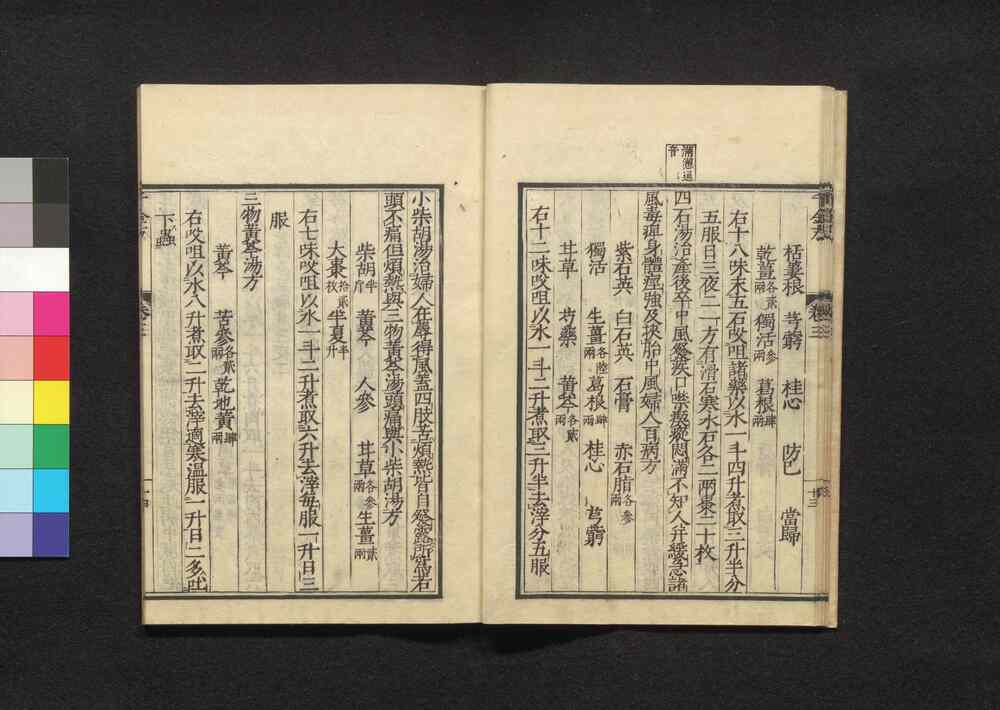 滿懣通
音
栝蔞根　芎藭　桂心　防己　當歸
乾薑各貳兩獨活參兩葛根肆兩
右十八味末五石㕮咀諸藥以水一斗四升煮取三升半分
五服日三夜二一方有滑石寒水石各二兩棗二十枚
四石湯治產後卒中風發疾口噤瘈瘲悶滿不知人并緩急諸
風毒痺身體痙強及挾胎中風婦人百病方
紫石英　白石英　石膏　赤石脂各參兩
獨活　生薑各陸兩葛根肆兩桂心　芎藭
甘草　芍藥　黃芩各貳兩
右十二味㕮咀以水一斗二升煮取三升半去滓分五服
千金方
卷三
十三
小柴胡湯治婦人在蓐得風蓋四肢苦煩熱皆自發露所爲若
頭不痛但煩熱與三物黃芩湯頭痛與小柴胡湯方
柴胡半斤　黃芩　人參　甘草各參兩生薑貳兩
大棗拾貳枚半夏半升
右七味㕮咀以水一斗二升煮取六升去滓每服一升日三
服
三物黃芩湯方
黃芩　苦參各貳兩乾地黃肆兩
右㕮咀以水八升煮取二升去滓適寒溫服一升日二多吐
下蟲
千金方
卷三
十四